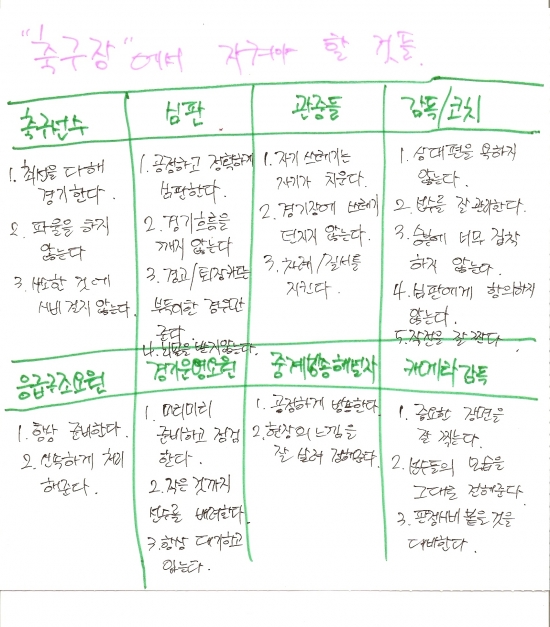 "축구장"에서 지켜야 할 것들.
축구선수
1. 최선을 다해
경기한다.
2. 파울을 하지
않는다
3. 사소한 것에
시비 걸지 않는다.
심판
1. 공정하고 정확하게
심판한다.
2. 경기흐름을
깨지 않는다
3. 경고/퇴장카드는
부득이한 경우만
준다.
4. 뇌물을 받지않는다.
관중들
1. 자기 쓰레기는
자기가 치운다.
2. 경기장에 쓰레기
던지지 않는다.
3. 차례/질서를
지킨다.
감독/코치
1. 상대편을 욕하지
않는다.
2. 선수를 잘 관리한다.
3. 승부에 너무 집착
하지 않는다.
4. 심판에게 항의하지
않는다.
5. 작전을 잘 짠다
응급구조요원
1. 항상 준비한다.
2. 신속하게 처리
해준다.
경기운영요원
1. 미리미리
준비하고 점검
한다.
2. 작은 것까지
선수를 배려한다.
3. 항상 대기하고
있는다.
중계방송해설자
1. 공정하게 방송한다.
2. 현장의 느낌을
잘 살려 전해준다.
카메라감독
1. 중요한 장면을
잘 찍는다.
2. 선수들의 모습을
그대로 전해준다.
3. 판정시비 붙을 것을
대비한다.